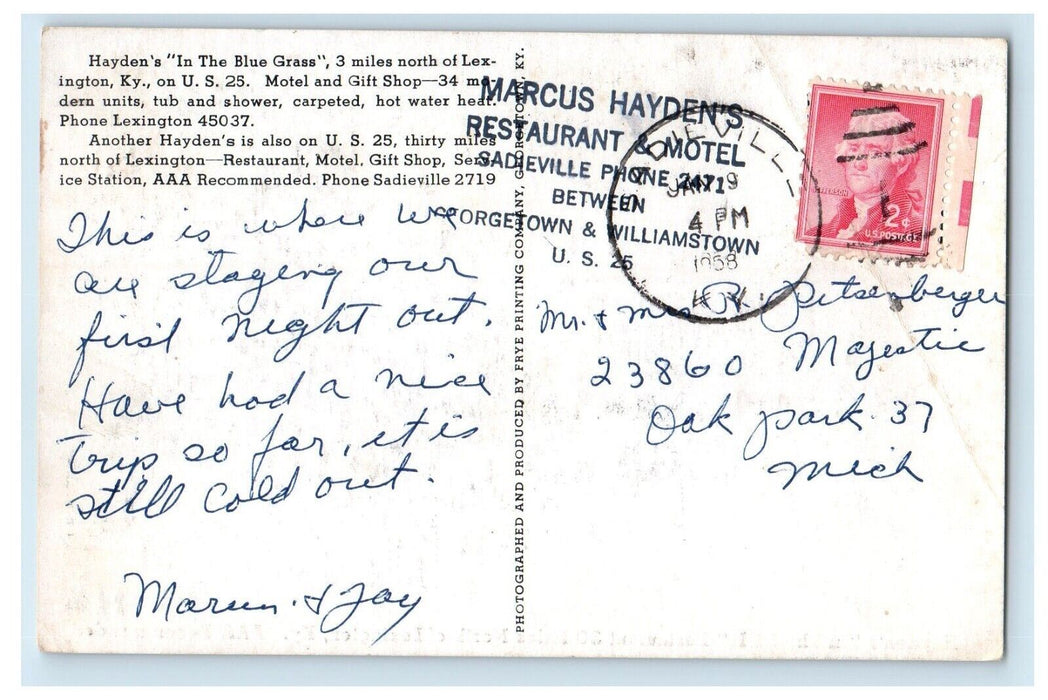 Hayden's "In The Blue Grass", 3 miles north of Lex-
ington, Ky., on U. S. 25. Motel and Gift Shop—34 mo-
dern units, tub and shower, carpeted, hot water heat.
Phone Lexington 45037.
Another Hayden's is also on U. S. 25, thirty miles
north of Lexington—Restaurant, Motel, Gift Shop, Serv-
ice Station, AAA Recommended. Phone Sadieville 2719
This is where we
are staying our
first night out.
Have had a nice
trip so far, it is
still cold out.
& Jay
PHOTOGRAPHED AND PRODUCED BY FRYE PRINTING COMPANY, GEORGETOWN, KY.
MARCUS HAYDEN'S
RESTAURANT & MOTEL
SADIEVILLE PHONE 2471
BETWEEN
GEORGETOWN & WILLIAMSTOWN
U. S. 25
SADIEVILLE
JAN 9
4 PM
1958
KY.
JEFFERSON
2¢
U.S. POSTAGE
Mr. & Mrs R. Pitsenberger
23860 Majestic
Oak Park 37
Mich